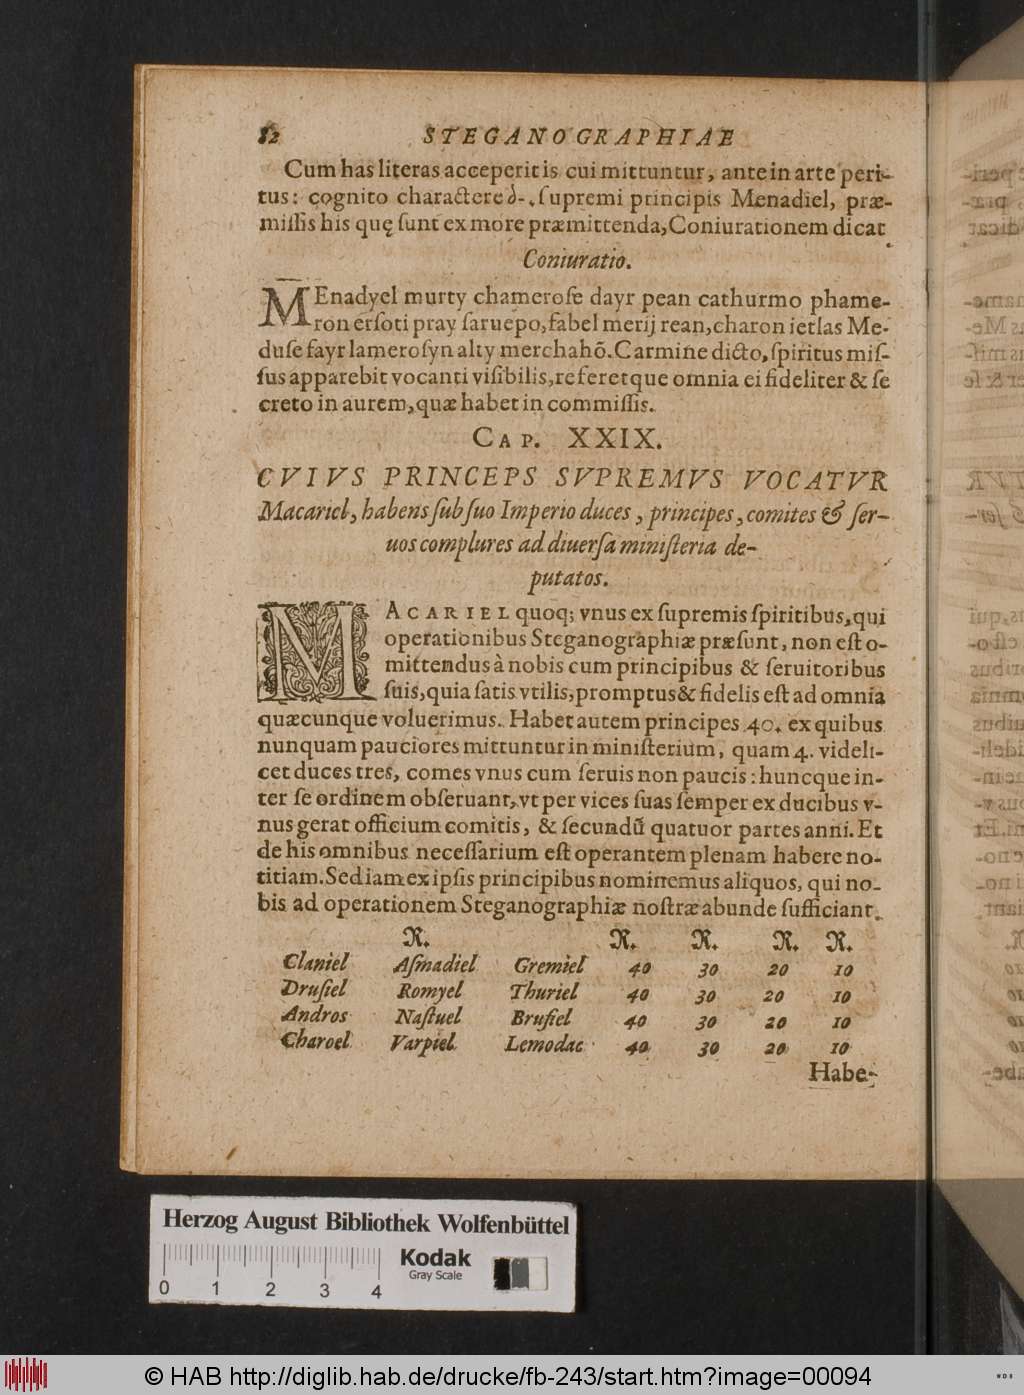 82 STEGANOGRAPHIAE
Cum has literas acceperitis cui mittuntur, ante in arte peri-
tus: cognito charactere supremi principis Menadiel, præ-
missis his quę sunt ex more præmittenda, Coniurationem dicat
Coniuratio.
MEnadyel murty chamerose dayr pean cathurmo phame-
ron ersoti pray saruepo, fabel merij rean, charon ietlas Me-
duse fayr lamerosyn alty merchahõ. Carmine dicto, spiritus mis-
sus apparebit vocanti visibilis, referetque omnia ei fideliter & se
creto in aurem, quæ habet in commissis.
CAP. XXIX.
CVIVS PRINCEPS SVPREMVS VOCATVR
Macariel, habens sub suo Imperio duces, principes, comites & ser-
uos complures ad diuersa ministeria de-
putatos.
MACARIEL quoq; vnus ex supremis spiritibus, qui
operationibus Steganographiæ præsunt, non est o-
mittendus à nobis cum principibus & seruitoribus
suis, quia satis vtilis, promptus & fidelis est ad omnia
quæcunque voluerimus. Habet autem principes 40. ex quibus
nunquam pauciores mittuntur in ministerium, quam 4. videli-
cet duces tres, comes vnus cum seruis non paucis: huncque in-
ter se ordinem obseruant, vt per vices suas semper ex ducibus v-
nus gerat officium comitis, & secundũ quatuor partes anni. Et
de his omnibus necessarium est operantem plenam habere no-
titiam. Sed iam ex ipsis principibus nominemus aliquos, qui no-
bis ad operationem Steganographiæ nostræ abunde sufficiant.
R. R. R. R. R.
Claniel Asmadiel Gremiel 40 30 20 10
Drusiel Romyel Thuriel 40 30 20 10
Andros Nastuel Brusiel 40 30 20 10
Charoel Varpiel Lemodac 40 30 20 10
Habe-
Herzog August Bibliothek Wolfenbüttel
Kodak
Gray Scale
0 1 2 3 4
© HAB http://diglib.hab.de/drucke/fb-243/start.htm?image=00094